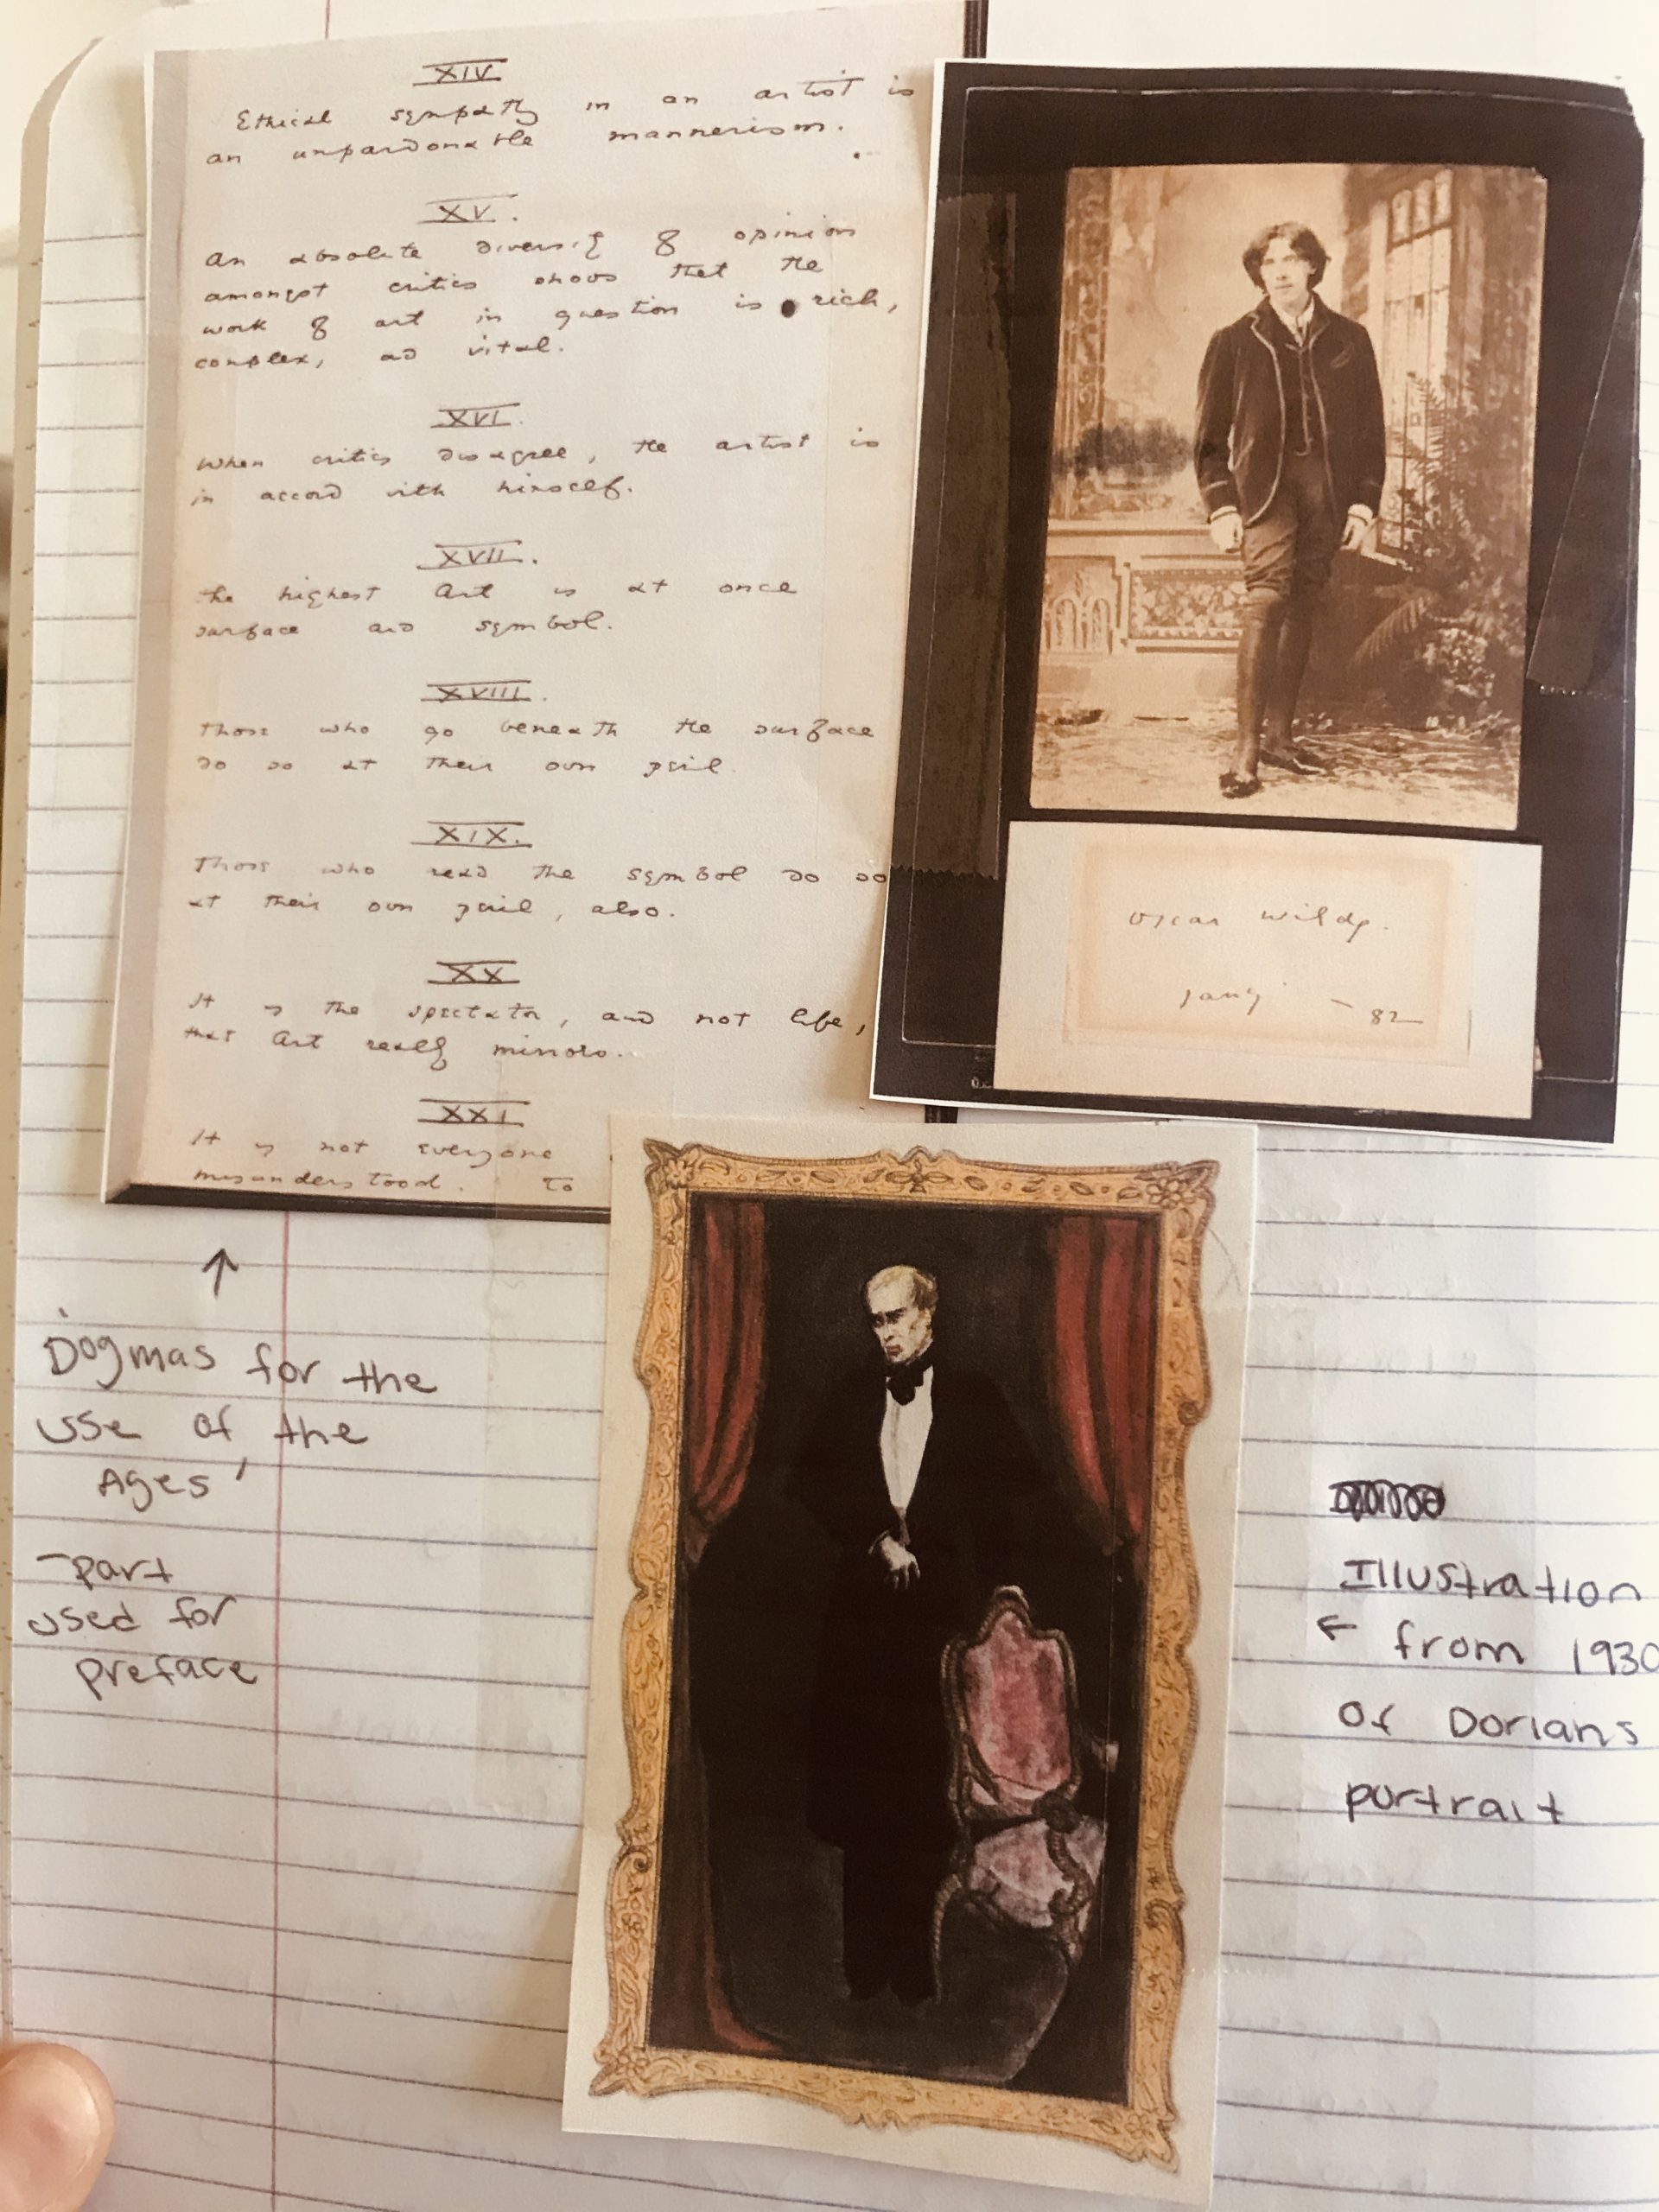 XIV
Ethical sympathy in an artist is
an unpardonable mannerism.
XV.
An absolute diversity of opinion
amongst critics shows that the
work of art in question is rich,
complex, and vital.
XVI.
When critics disagree, the artist is
in accord with himself.
XVII.
The highest Art is at once
surface and symbol.
XVIII.
Those who go beneath the surface
do so at their own peril
XIX.
Those who read the symbol do so
at their own peril, also.
XX
It is the spectator, and not life,
that Art really mirrors.
XXI
It is not everyone
misunderstood. To
Oscar Wilde.
Jany - 82
Dogmas for the
use of the
Ages'
- part
used for
preface
Illustration
← from 1930
of Dorians
portrait